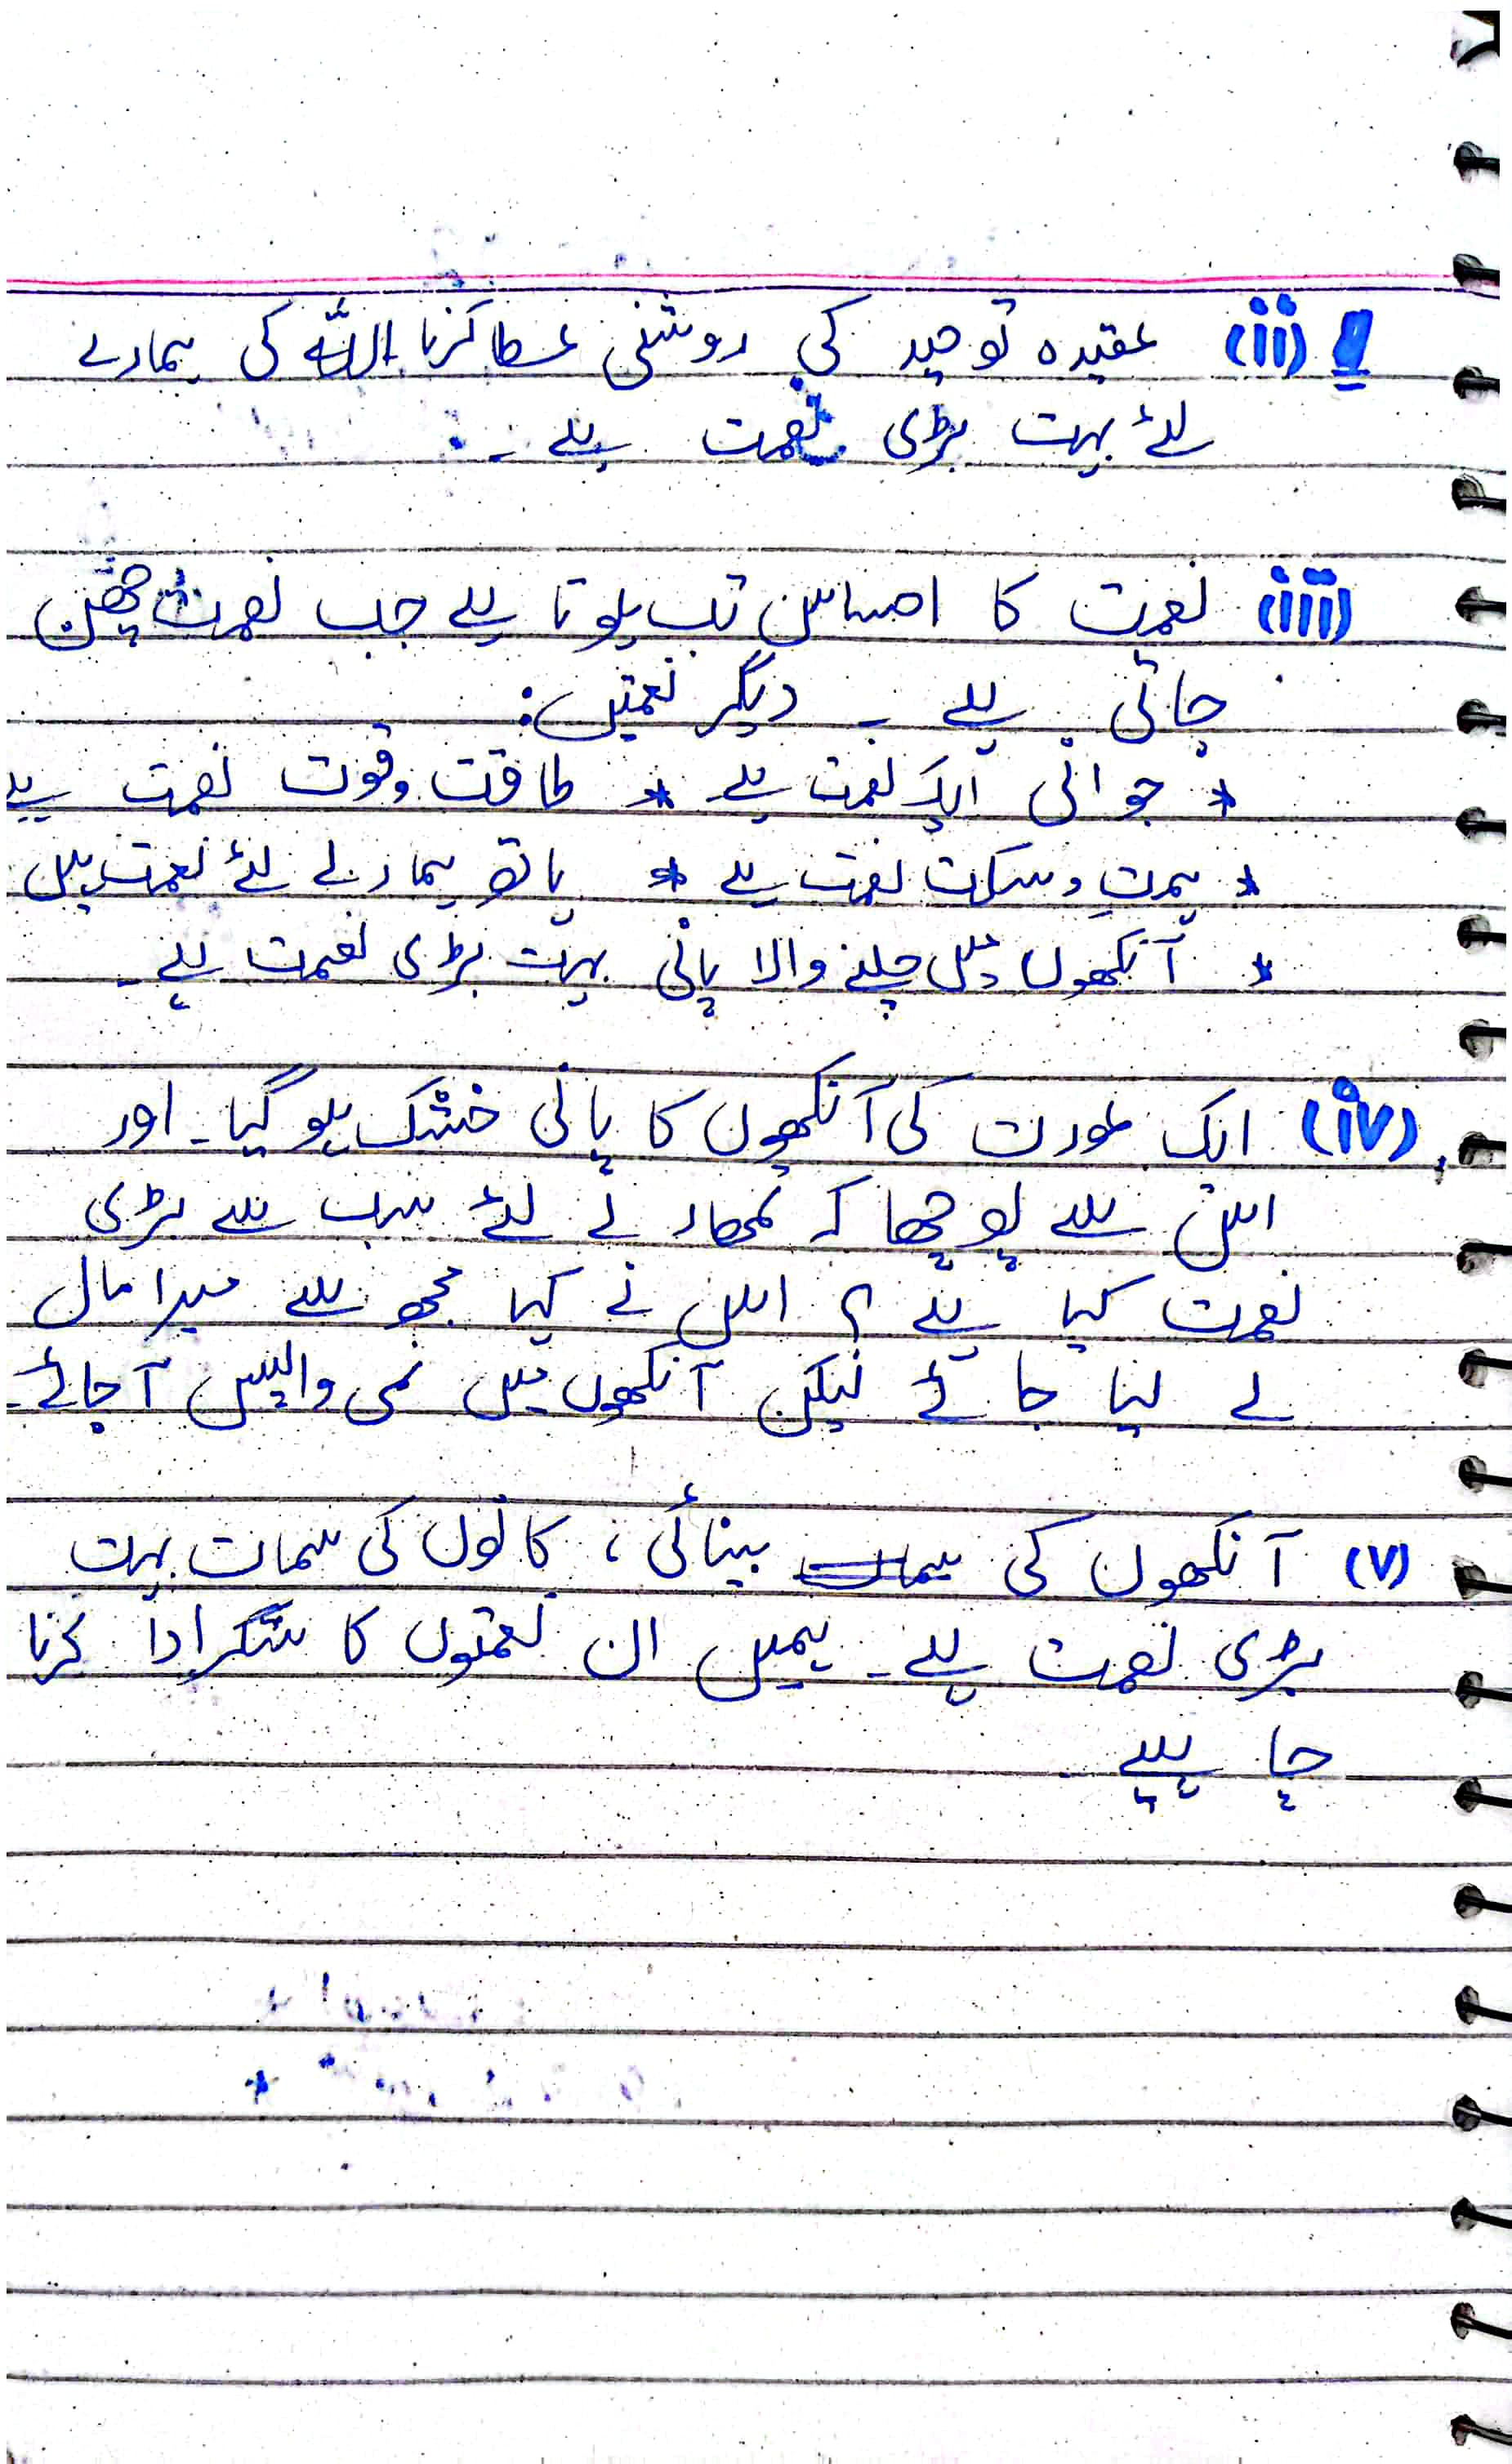 (ii) عقیدہ توحید کی روشنی عطا کرنا اللہ کی ہمارے
لئے بہت بڑی نعمت ہے ۔
(iii) نعمت کا احساس تب ہوتا ہے جب نعمت چھن
جاتی ہے ۔ دیگر نعمتیں:
* جوانی ایک نعمت ہے * طاقت وقوت نعمت ہے
* ہمت و سکت نعمت ہے * ہاتھ ہمارے لئے نعمت ہیں
* آنکھوں میں چلنے والا پانی بہت بڑی نعمت ہے ۔
(iv) ایک عورت کی آنکھوں کا پانی خشک ہو گیا ۔ اور
اس سے پوچھا کہ تمھارے لئے سب سے بڑی
نعمت کیا ہے ؟ اس نے کہا مجھ سے میرا مال
لے لیا جائے لیکن آنکھوں میں نمی واپس آجائے ۔
(v) آنکھوں کی سمات بینائی ، کانوں کی سمات بہت
بڑی نعمت ہے ۔ ہمیں ان نعمتوں کا شکر ادا کرنا
چاہیے ۔